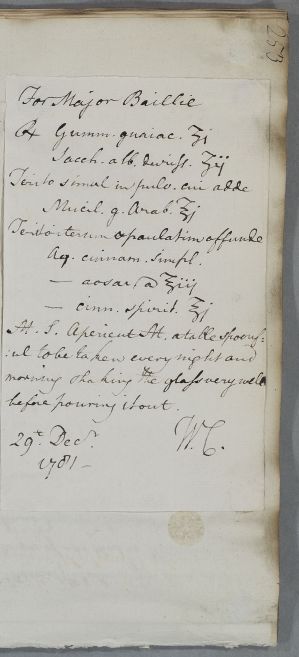 253
For Major Baillie
℞ Gumm. guaiac. ʒj
Sacch. alb. duriss. ʒij
Terito simul in pulv. cui adde
Mucil. g. Arab. ʒj
Terito iterum & paulatim affunde
Aq. cinnam. simpl.
— rosar. a ℥iij
— cinn. spirit. ℥j
M. S. Aperient M. a table spoonf:
:ul to be taken every night and
morning shaking the glass very well
before pouring it out.
29th. Decr. W.C.
1781 —